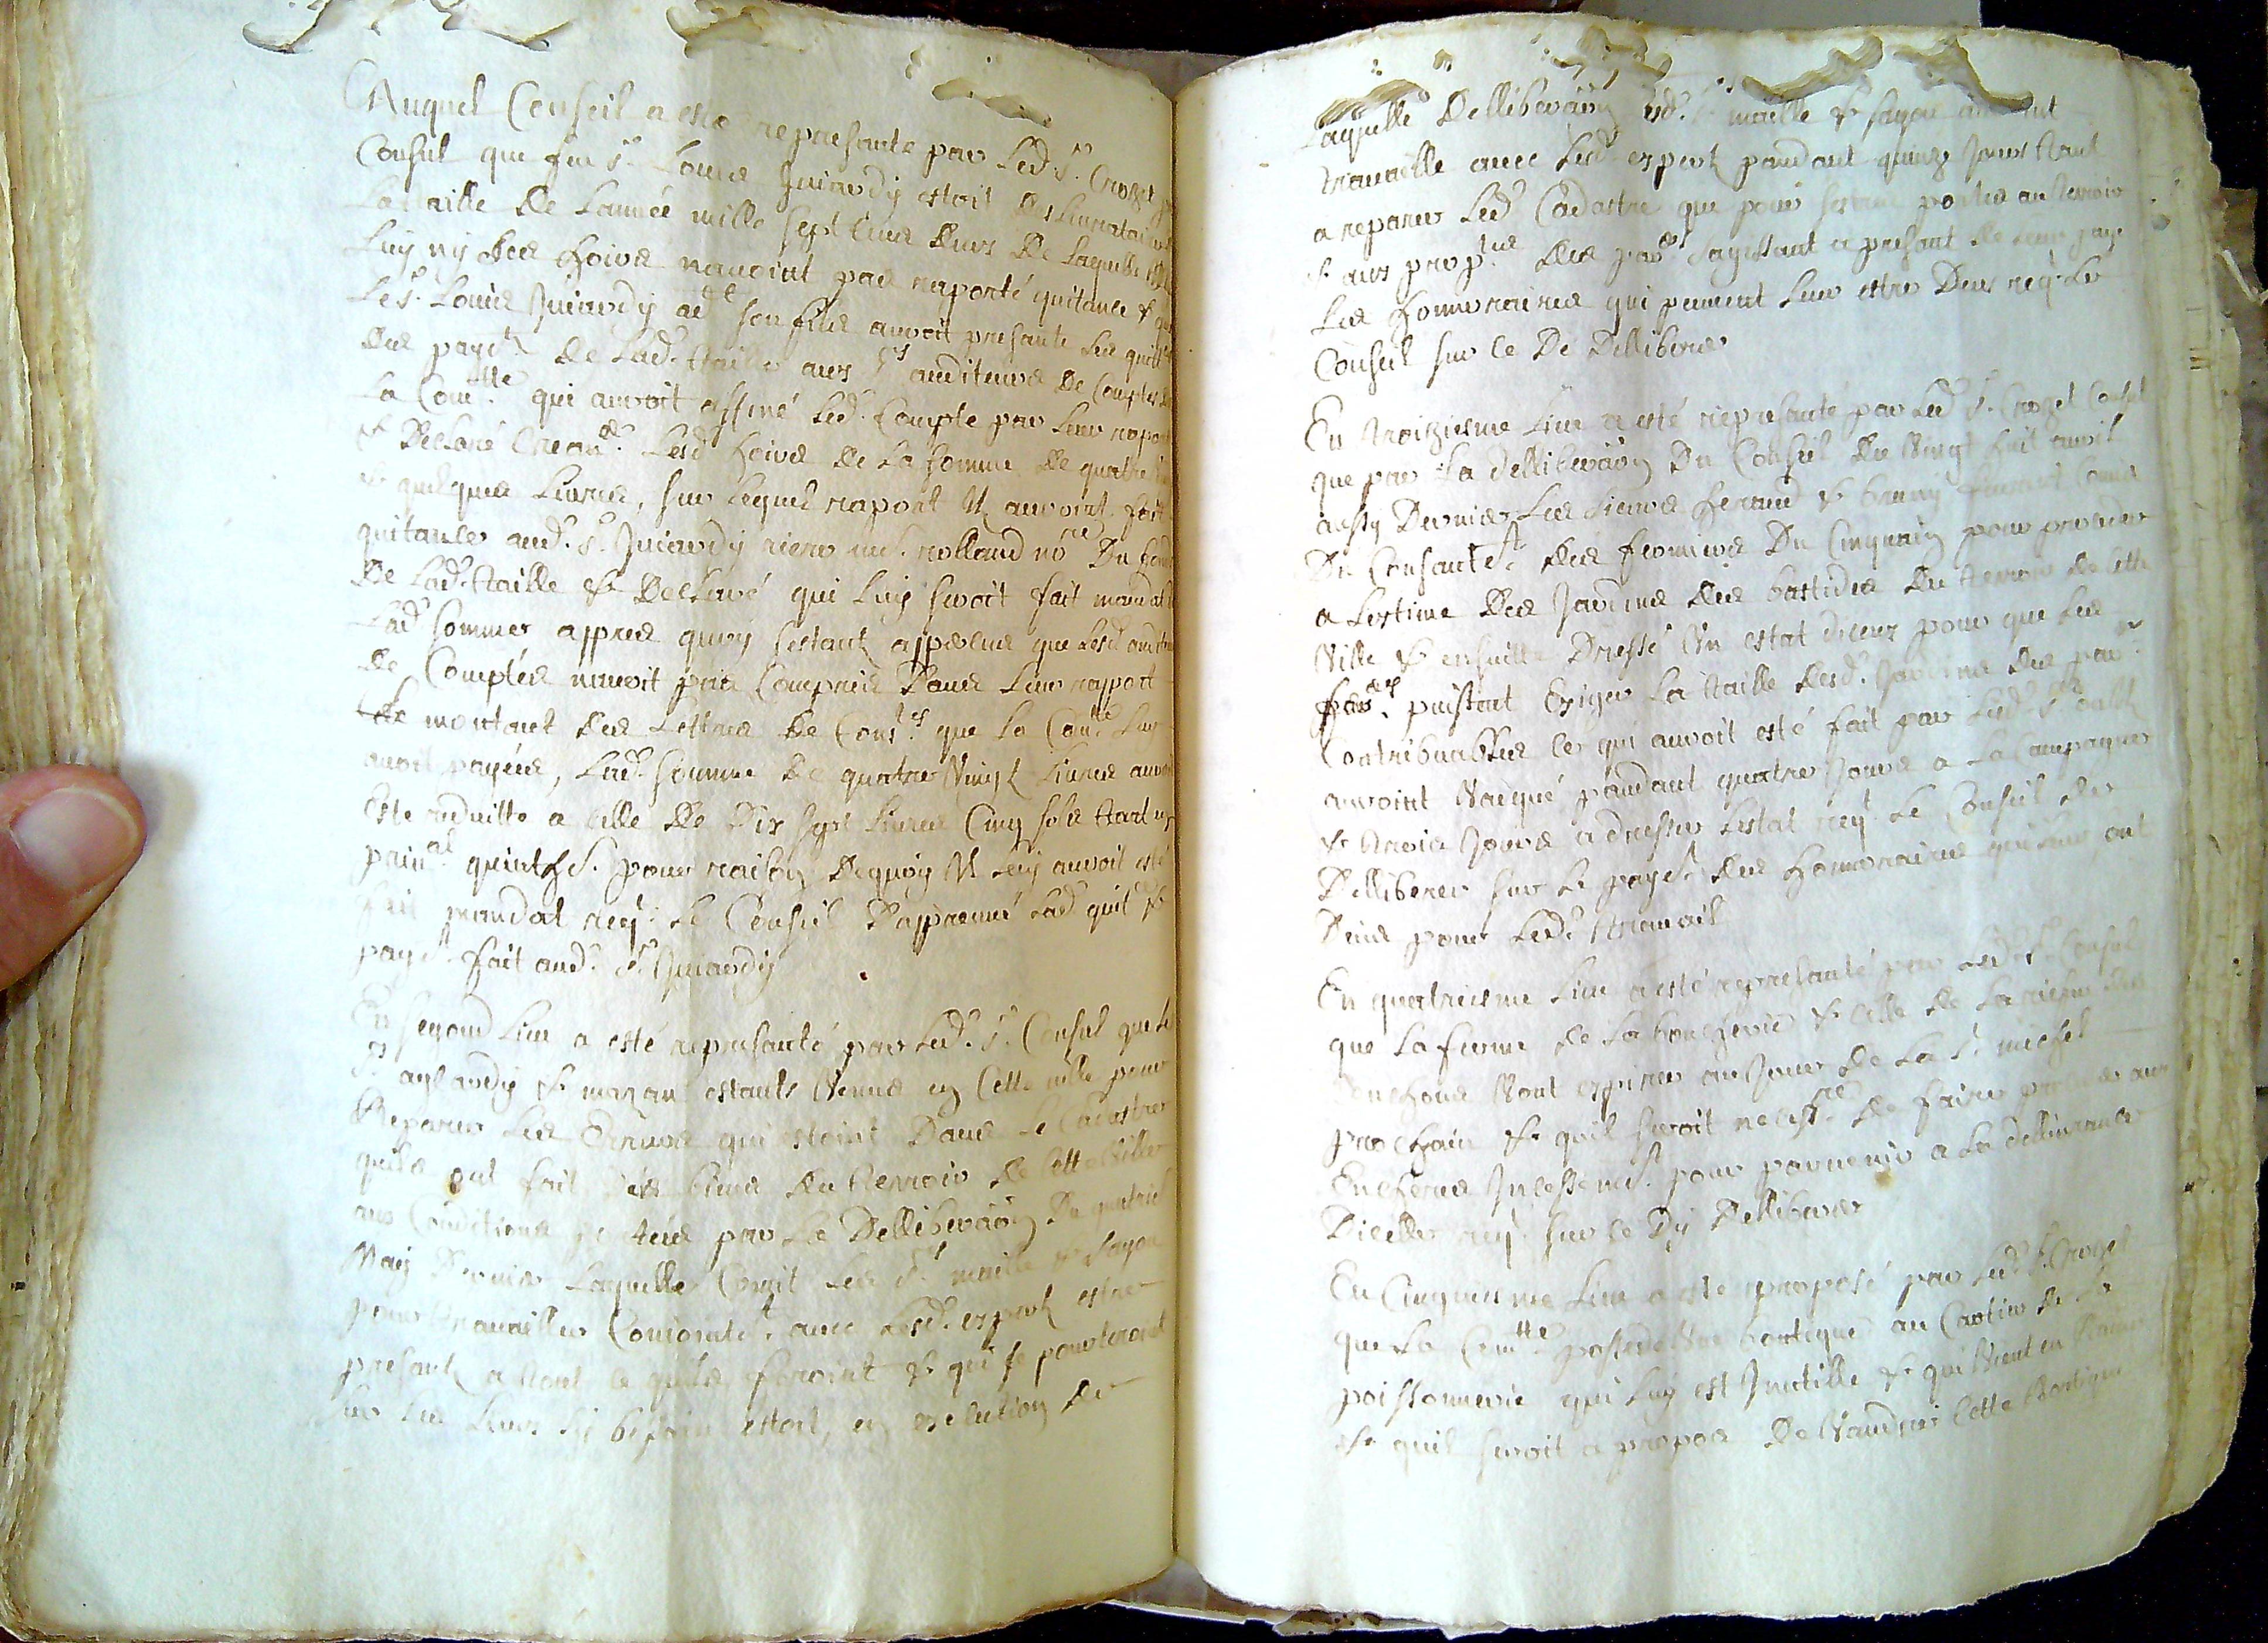 Auquel Conseil a esté representé par Led. Sr. Crozet
Consul que feu Sr. Louis Juiardy estoit
La taille de Lannée mille sept Cens deux de Laquelle
Luy ny Ses hoirs navoint pas raporté quitance &
Le Sr. Louis Juiardy adt. son fils auroit presanté Les
des payets. de Lad. taille aux Srs auditeurs de Comptes
La Comtté. qui auroit affiné Led. Compte par Leur rapor
& Declaré Lesd hoirs de La somme de quatre
& quelques Livres, sur Lequel raport Il auroint fait
quitance aud. Sr. Juiardy riere me. rolland nore Du
De Lad. taille & Declaré qui Luy seroit fait mandat
Lad sommer appres quoy sestant apperceus que Lesd
de Comptes navoit pas Compris dans Leur rapport
Le montant des Lettres de que la Comtté Luy
avoit payées, Lad. somme de quatre Vingt Livres
Este reduitte a celle de Dix sept Livres Cinq sols tant
prinal. quint &c. pour raison dequoy Il Luy auroit esté
fait mandat req. Le Conseil Dapprouvé Lad quite &
payet. fait aud. Sr. Juiardy
En segond Lieu a esté representé par Led. Sr. Consul que Le
Srs aylaudy & mazan estants Venus en Cette ville pour
Reparer Les Erreurs qui estoint Dans Le Cadastre
quils ont fait des biens du terroir de Cette Ville
aux Conditions par La Delliberaön Du
May Dernier Laquelle Comit Les Srs maille & sayou
pour travailler Coniointet. avec Lesd. expertz estre
presantz a tout ce quils feroint & qui se pourteront
sur Les Lieux sy besoin estoit, en execution de
Laquelle Dellibéraön Lesd. Srs maille & sayou
travaillé avec Lesd expertz pandant quinze Jours tant
a reparer Led. Cadastre que pour sestre portés au terroir
& aux propts. des sagissant a presant de Leur paye
Les honnoraires qui peuvent Leur estre Deus req. Le
Conseil sur ce De Delliberer
En troiziesme Lieu a esté representé par Led Sr. Crozet Consul
que par La dellibéraön Du Conseil du Vingt huit avril
aussy Dernier Les Sieurs feraud & bruny furent Comis
Du Consantet. des fermiers Du Cinquain pour proceder
a Lestime des Jardins des bastides du terroir de Cette
Ville & ensuitte Dresse Un estat diceux pour que Les
fermers. puissent Exiger La taille desd. Jardins des parers.
Contribuables Ce qui auroit esté fait par Lesd. Srs
auroint Vacqué pandant quatre Jours a La Campagne
& trois Jours a dresser Lestat req. Le Conseil de
Delliberer sur Le payet. des honnoraires qui Leur ont
Deus pour Led. travail
En quatriesme Lieu a esté representé par Led. Sr. Consul
que La ferme de La boucherie & Celle de La
Vont expirer au Jour de La St. michel
prochain & quil seroit necessre. de faire proceder aux
Encheres Incessemt. pour parvenir a La dellivrance
Dicelles req. sur ce Dy Delliberer
En Cinquiesme Lieu a este proposé par Led. Sr. Crozet
que La Comtté possede Une boutique au Cartier de La
poissonnerie qui Luy est Inutille & qui Vient en Ruine
& quil seroit a propos de Vandre Cette Boutique